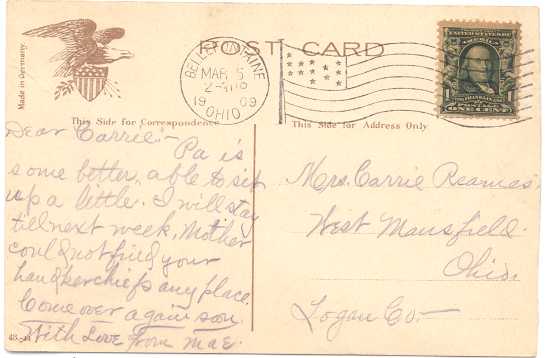 Made in Germany
POST CARD
BELLEFONTAINE
MAR 5
1909
OHIO
ONE CENT
This Side for Correspondence
This Side for Address Only
Dear Carrie:-
Pa is
some better, able to sit
up a little. I will stay
till next week. Mother
could not find your
handkerchiefs any place.
Come over again soon.
With Love from Mae.
Mrs. Carrie Reames,
West Mansfield.
Ohio.
Logan Co-